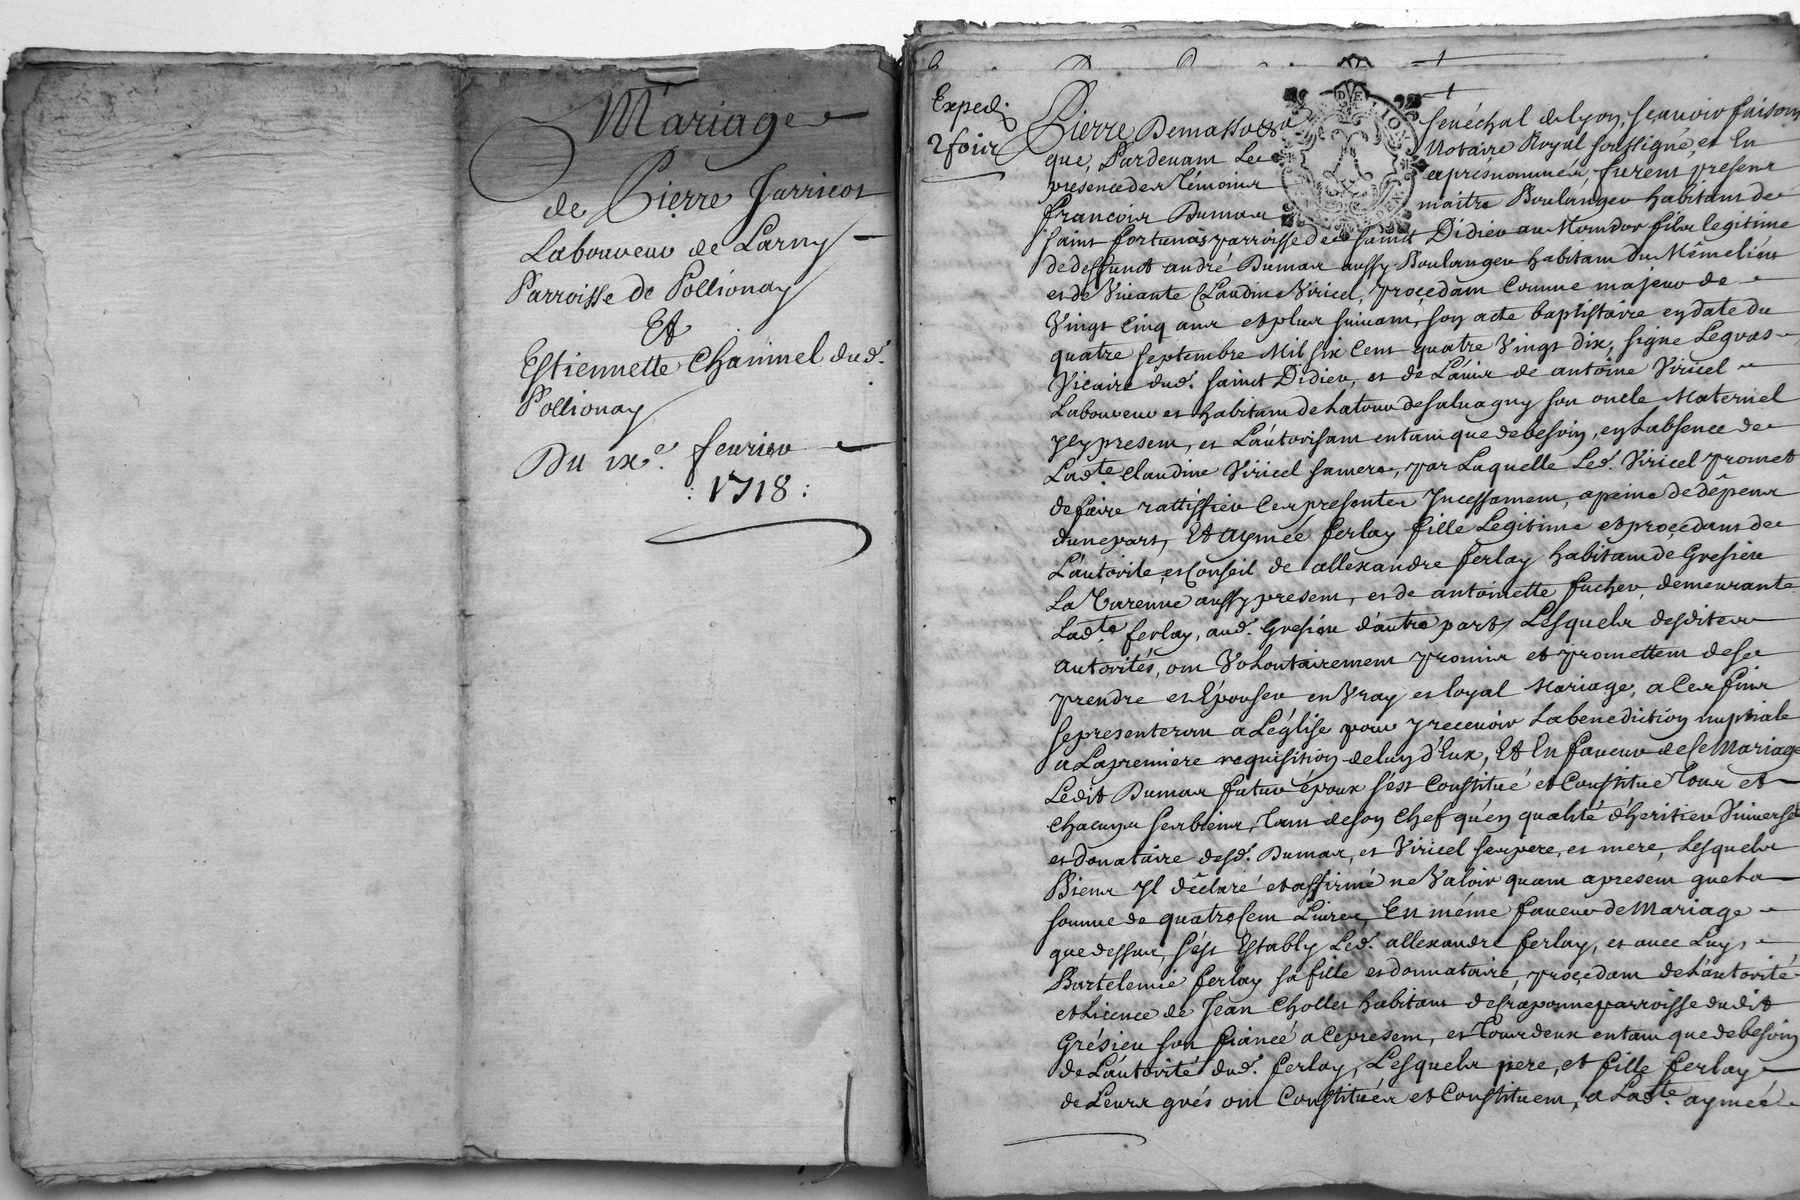 Mariage
de Pierre Jarricot
Laboureur de Larny
Parroisse de Pollionay
Et
Estiennette Chammel dud.
Pollionay
Du ixe. feurier
: 1718 :
Exped.
2 fois
Pierre Demasso Senéchal de Lyon, scauoir faisons
que, Pardeuant Le Notaire Royal soussigné, et En
présence des Témoins aprésnommés furent present
françois Dumas maitre Boulanger habitant de
saint fortunas parroisse de saint Didier au Montdor fils legitime
de deffunct andré Dumas aussy Boulanger habitant du Même lieu
et de Viuante Claudine Viricel, proçedant comme majeur de
Vingt cinq ans et plus suiuant, son acte baptistaire en date du
quatre septembre Mil six Cent quatre Vingt dix, signé Legras
Vicaire dud. saint Didier, et de L'auis de antoine Viricel
Laboureur et habitant de Latour de saluagny son oncle Maternel
Icy present, et L'autorisant entant que de besoin, en L'absence de
Ladte. Claudine Viricel sa mere, par Laquelle Led. Viricel promet
de faire rattiffier Ces presentes Incessament, a peine de dêpens
d'une part, Et aymée ferlay fille Legitime et proçedant de
L'autorité et Conseil de allexandre ferlay habitant de Gresieu
La Varenne aussy present, et de antoinette fucher, demeurante
Ladte. ferlay, aud. Gresieu d'autre part, Lesquels desdites
autorités, ont Volontairement promis et promettent de se
prendre et Epouser en Vray et loyal Mariage, a Ces fins
se presenteront a L'église pour y receuoir La benediction nuptiale
a La premiere requisition de L'un d'Eux, Et En faueur de se Mariage
Ledit Dumas futur époux s'est Constitué et Constitue Tous et
chacuns ses biens, Tant de son Chef qu'en qualité d'héritier Vniuersel
et donataire desd. Dumas, et Viricel ses pere, et mere, Lesquels
Biens Il dêclaré et affirmé ne Valoir quant a present que La
somme de quatre Cent Liures En même faueur de Mariage
que dessus, s'est Estably Led. allexandre ferlay, et auec Luy,
Bartelemie ferlay sa fille et donnataire, proçedant de L'autorité
et Licence de Jean Chollet habitant de parroisse dudit
Grésieu son fiancé a Ce present, et Tous deux entant que de besoin
de L'autorité dud. ferlay, Lesquels pere, et fille ferlay
de Leurs grés ont Constitués et Constituent, a Ladte. aymée